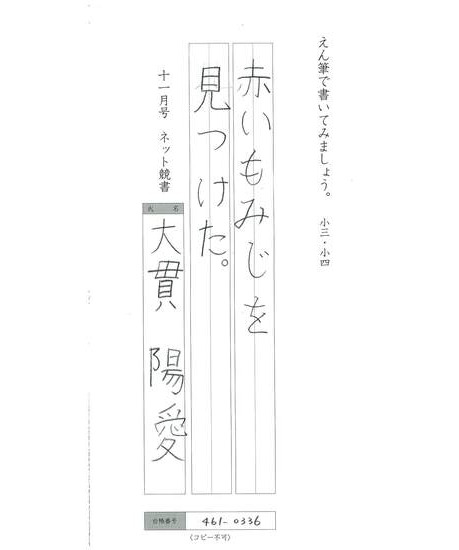 えん筆で書いてみましょう。 小三・小四
赤いもみじを
見つけた。
十一月号 ネット競書
氏 名
大貫 陽愛
合格番号 461-0336
(コピー不可)